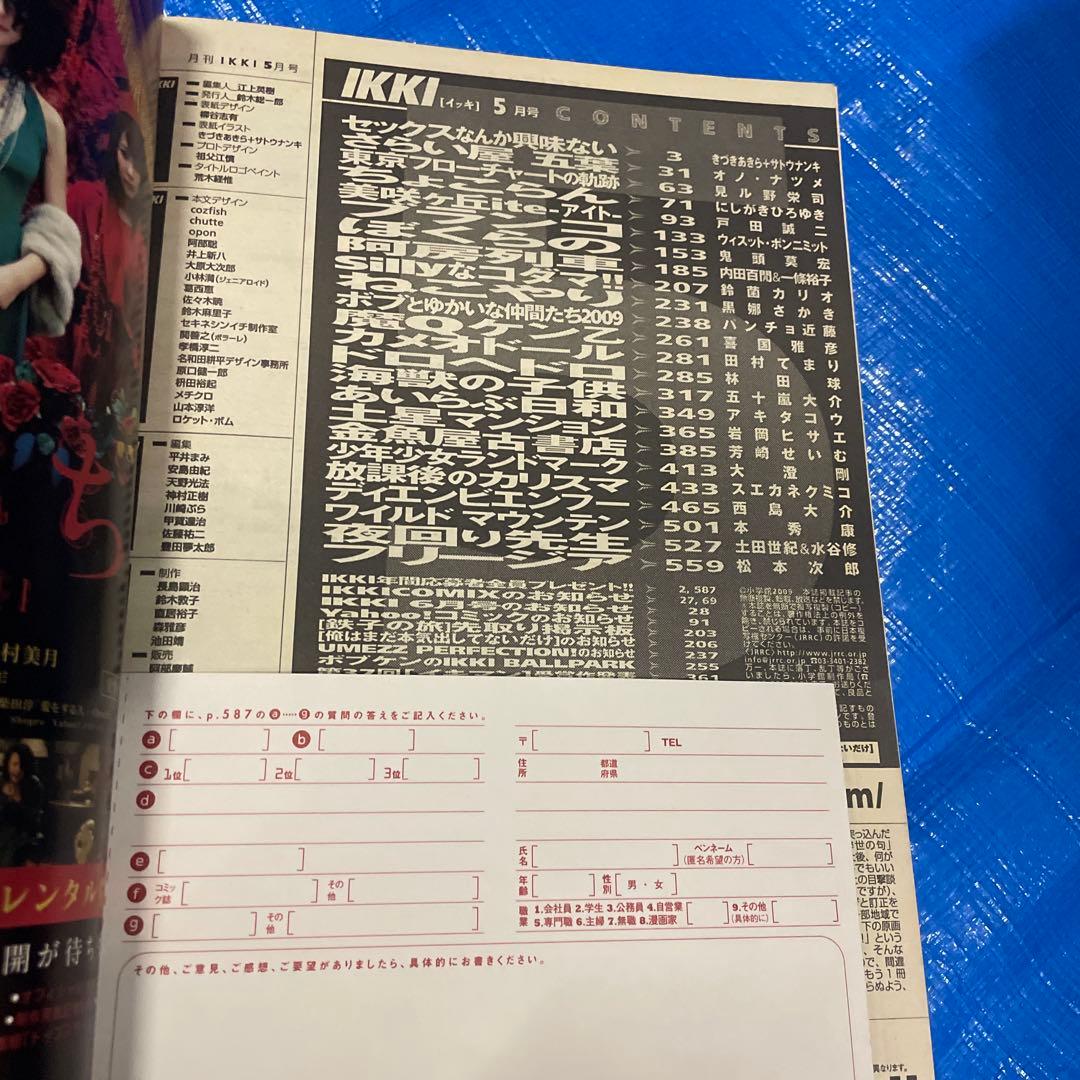 月刊 IKKI 5月号
編集人_江上英樹
発行人_鈴木総一郎
表紙デザイン
柳谷志有
表紙イラスト
きづきあきら+サトウナンキ
プロトデザイン
祖父江慎
タイトルロゴペイント
荒木経惟
本文デザイン
cozfish
chutte
opon
阿部聡
井上新八
大原大次郎
小林満(ジェニアロイド)
葛西恵
佐々木暁
鈴木麻里子
セキネシンイチ制作室
関善之(ボラーレ)
孝橋淳二
名和田耕平デザイン事務所
原口健一郎
枡田裕起
メチクロ
山本淳洋
ロケット・ボム
編集
平井まみ
安島由紀
天野光法
神村正樹
川﨑ぷら
甲賀達治
佐藤祐二
豊田夢太郎
制作
長島顕治
鈴木敦子
直居裕子
森雅彦
池田靖
販売
阿部慶輔
IKKI [イッキ] 5月号 CONTENTS
セックスなんか興味ない 3 きづきあきら+サトウナンキ
さらい屋 五葉 31 オノ・ナツメ
東京フローチャートの軌跡 63 見ル野栄司
ちょこらん 71 にしがきひろゆき
美咲ヶ丘ite-アイト- 93 戸田誠二
ブランコ 133 ウィスット・ポンニミット
ぼくらの 153 鬼頭莫宏
阿房列車 185 内田百閒&一條裕子
Sillyなコダマ!! 207 鈴菌カリオ
ねこやり 231 黒娜さかき
ボブとゆかいな仲間たち2009 238 パンチョ近藤
魔Qケン乙 261 喜国雅彦
カメオドール 281 田村てまり
ドロヘドロ 285 林田球
海獣の子供 317 五十嵐大介
あいらぶ日和 349 アキタコウ
土星マンション 365 岩岡ヒサエ
金魚屋古書店 385 芳崎せいむ
少年少女ランドマーク 413 大澄剛
放課後のカリスマ 433 スエカネクミコ
ディエンビエンフー 465 西島大介
ワイルドマウンテン 501 本秀康
夜回り先生 527 土田世紀&水谷修
フリージア 559 松本次郎
IKKI年間応募者全員プレゼント!! 2, 587
IKKICOMIXのお知らせ 27, 69
IKKI 6月号のお知らせ 28
Yahoo!コミックのお知らせ 91
[鉄子の旅]先取り掲示板 203
[俺はまだ本気出してないだけ]のお知らせ 206
UMEZZ PERFECTION!のお知らせ 237
ボブケンのIKKI BALLPARK 255
下の欄に、p.587のⓐ……ⓖの質問の答えをご記入ください。
a [ ] b [ ]
c 1位[ ] 2位[ ] 3位[ ]
d
e [ ]
f コミック誌 [ ] その他 [ ]
g [ ] その他 [ ]
〒[ ] TEL
住所 都道府県
氏名 [ ] ペンネーム(匿名希望の方) [ ]
年齢 [ ] 性別 [男・女]
職業 1.会社員 2.学生 3.公務員 4.自営業 5.専門職 6.主婦 7.無職 8.漫画家 [ ] 9.その他(具体的に) [ ]
その他、ご意見、ご感想、ご要望がありましたら、具体的にお書きください。
村美月
レンタル
開が待ち